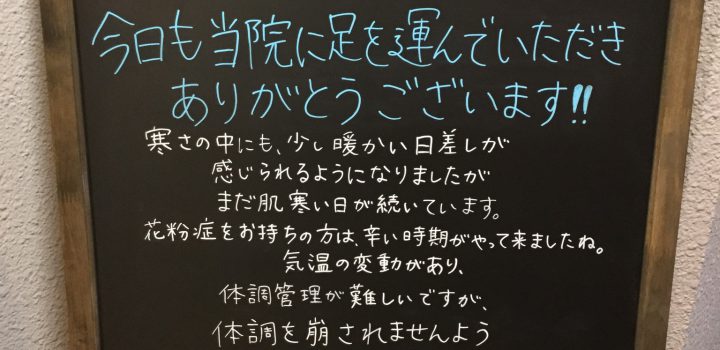 今日も当院に足を運んでいただき
ありがとうございます!!
寒さの中にも、少し暖かい日差しが
感じられるようになりましたが
まだ肌寒い日が続いています。
花粉症をお持ちの方は、辛い時期がやって来ましたね。
気温の変動があり、
体調管理が難しいですが、
体調を崩されませんよう